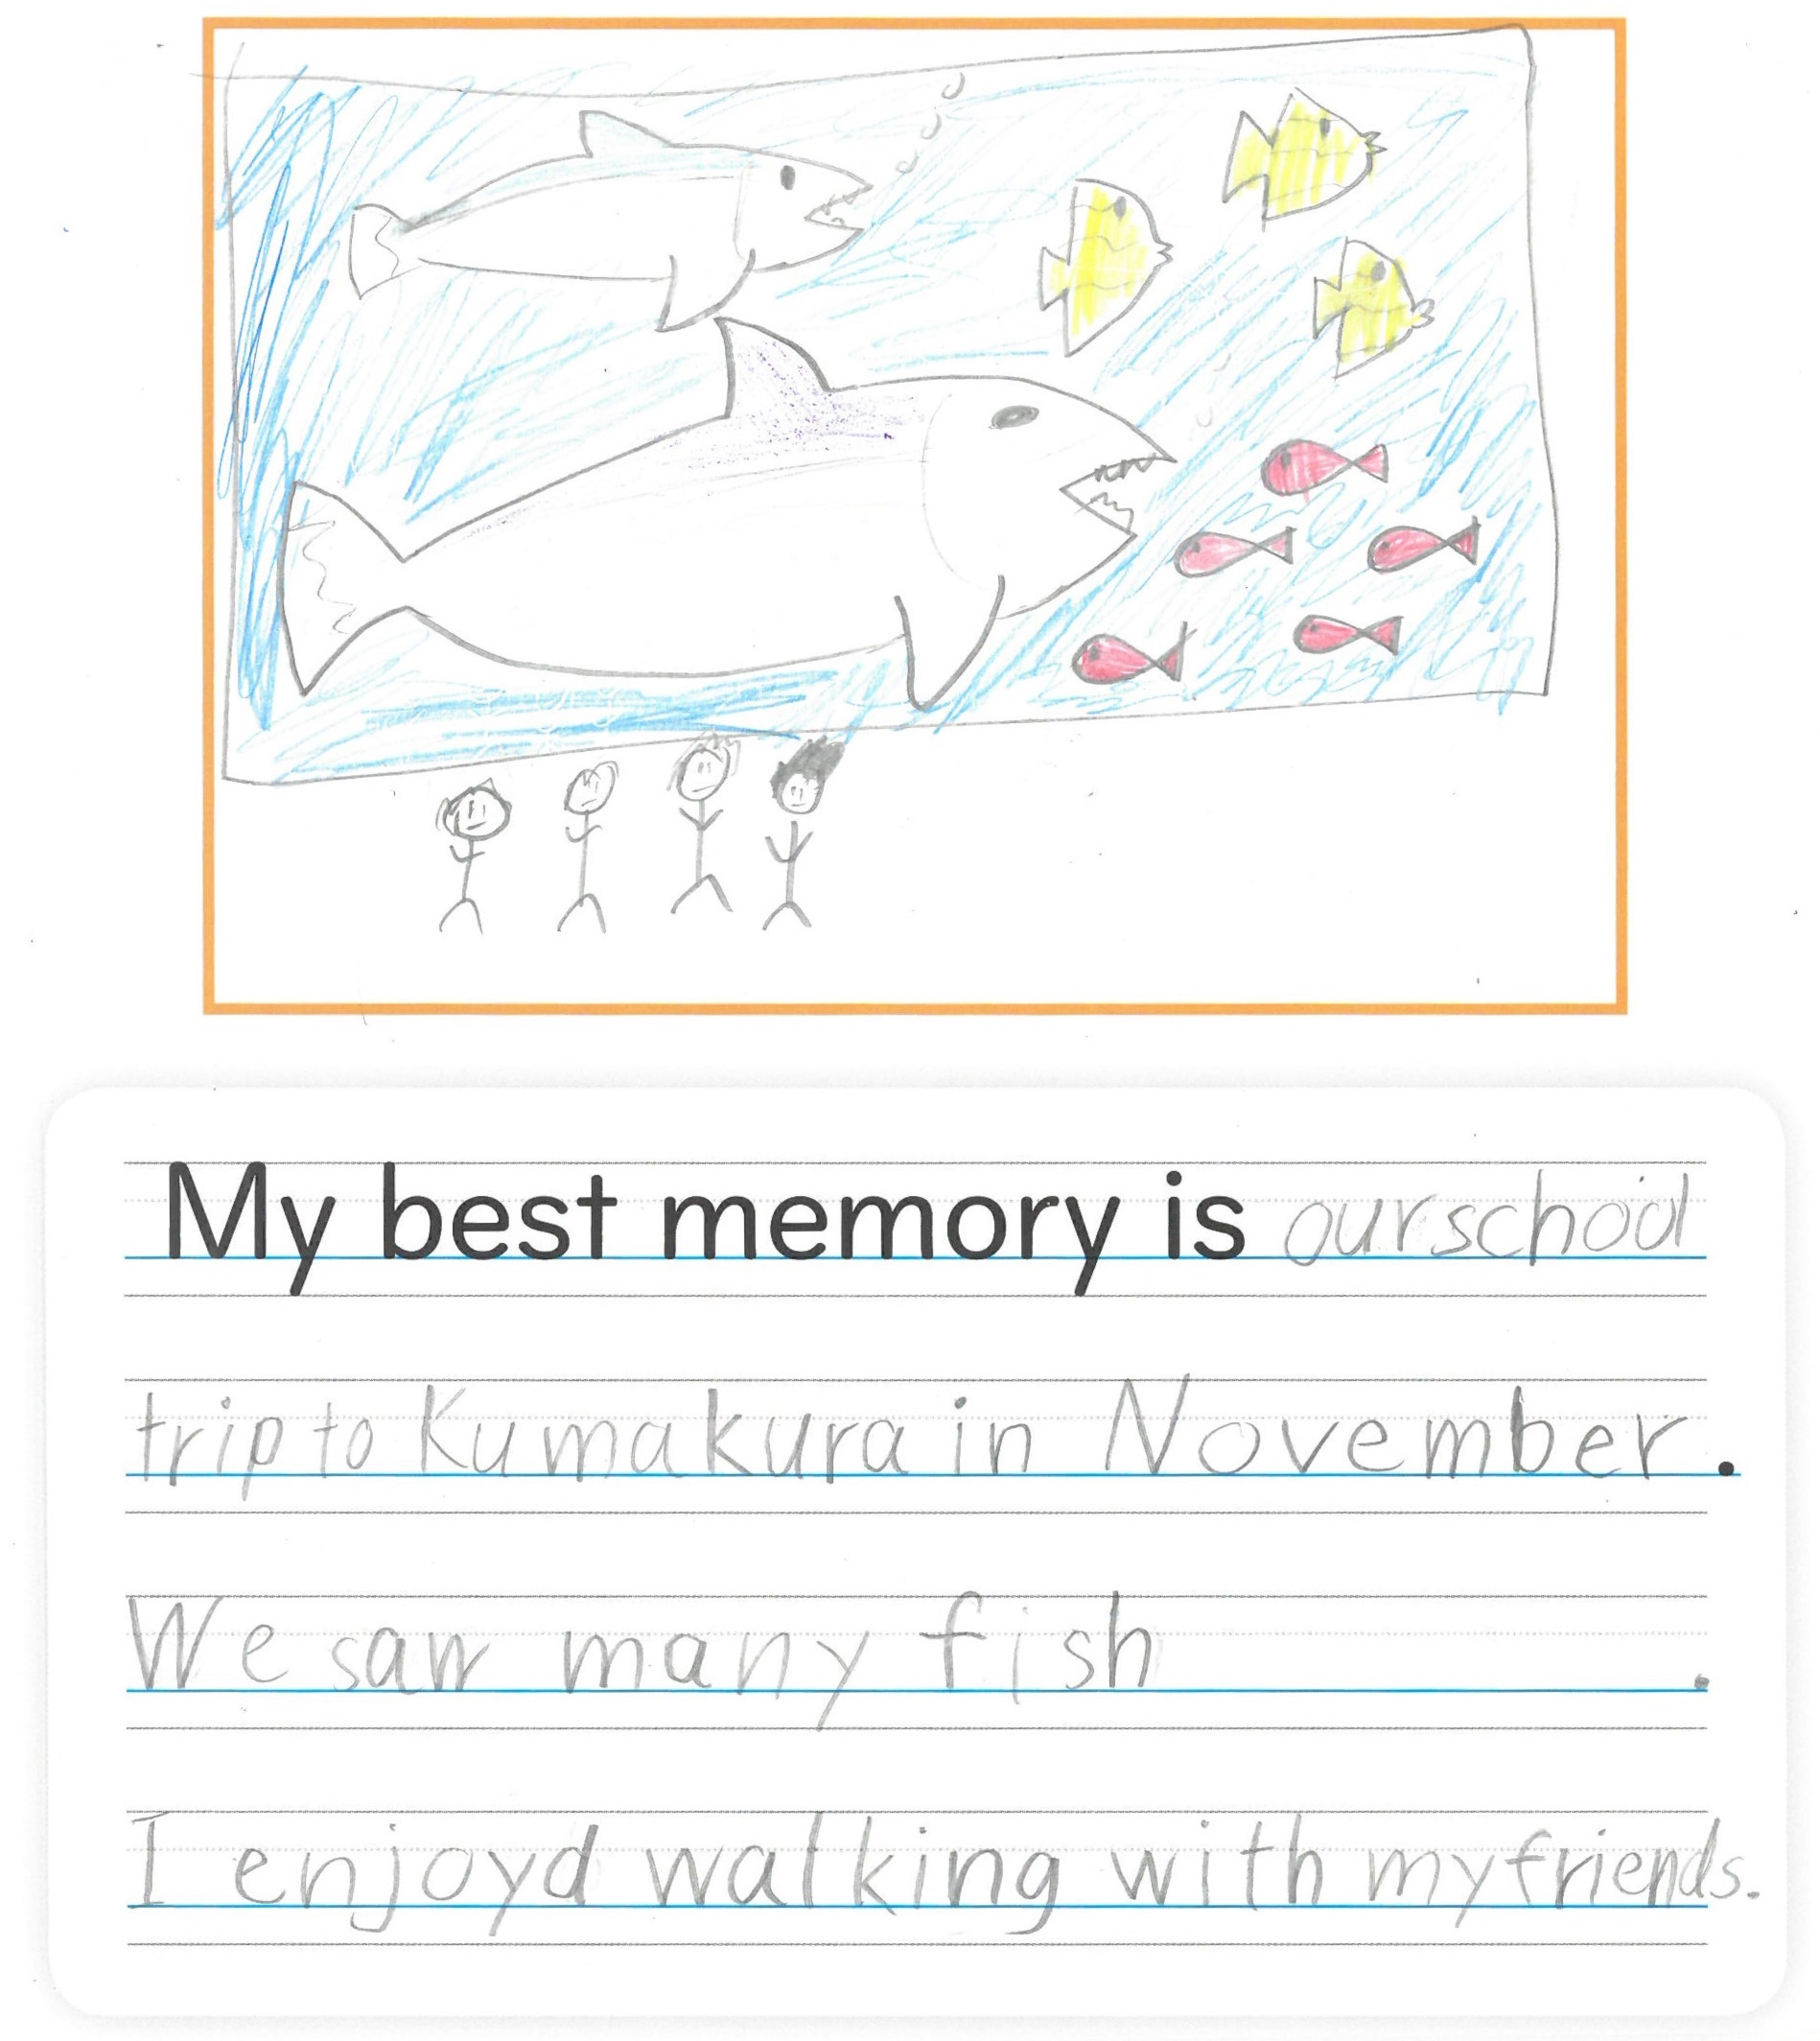 My best memory is our school
trip to Kumakura in November.
We saw many fish .
I enjoyd walking with my friends.